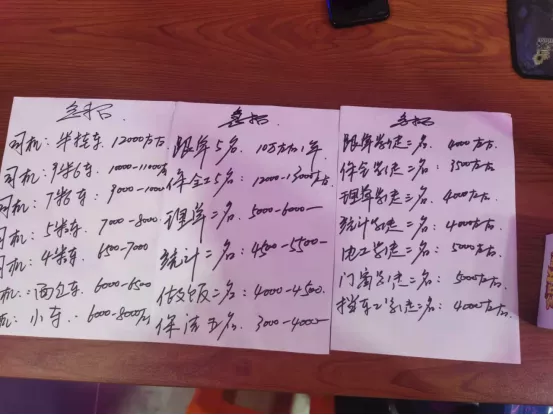 急招
司机：半挂车 12000左右
司机：9米6车 10000-11000
司机：7米6车 9000-10000
司机：5米车 7000-8000
司机：4米车 6500-7000
机：面包车 6000-6500
机：小车：6000-8000
急招
跟单5名 10万左右1年
保全工5名：12000-13000左右
理单二名：5000-6000
统计二名：4500-5500
做饭二名：4000-4500
保洁五名：3000-4000
急招
跟单学徒二名：4000左右
保全学徒二名：3500左右
理单学徒二名：4000左右
统计学徒二名：4000左右
电工学徒二名：5000左右
门窗学徒二名：5000左右
挡车工学徒二名：4000左右